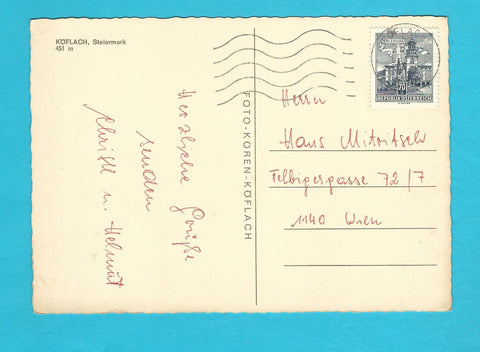 KÖFLACH, Steiermark
451 m
Herzliche Grüße
senden
Christl u. Helmut
FOTO-KOREN-KÖFLACH
70
REPUBLIK ÖSTERREICH
Herrn
Hans Mitritsch
Felbigergasse 72/7
1140 Wien